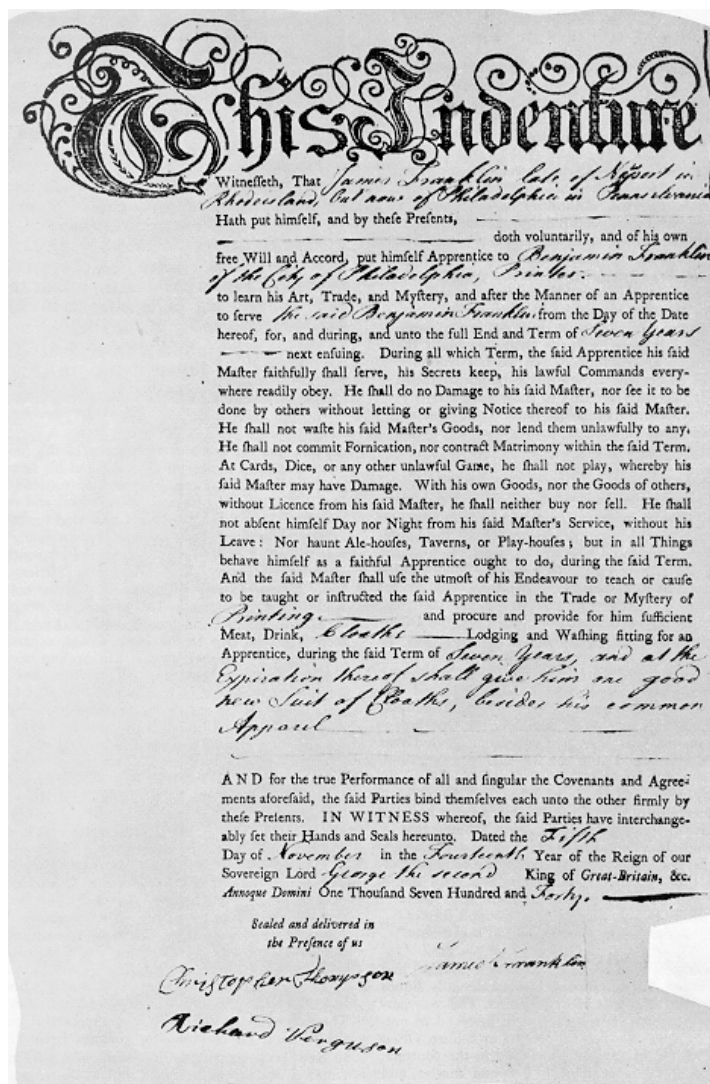 This Indenture
Witneſſeth, That James Franklin late of Newport in
Rhodeisland, but now of Philadelphia in Pennsylvania
Hath put himſelf, and by theſe Preſents,
doth voluntarily, and of his own
free Will and Accord, put himſelf Apprentice to Benjamin Franklin
of the City of Philadelphia, Printer.
to learn his Art, Trade, and Myſtery, and after the Manner of an Apprentice
to ſerve the said Benjamin Franklin from the Day of the Date
hereof, for, and during, and unto the full End and Term of Seven Years
next enſuing. During all which Term, the ſaid Apprentice his ſaid
Maſter faithfully ſhall ſerve, his Secrets keep, his lawful Commands every-
where readily obey. He ſhall do no Damage to his ſaid Maſter, nor ſee it to be
done by others without letting or giving Notice thereof to his ſaid Maſter.
He ſhall not waſte his ſaid Maſter's Goods, nor lend them unlawfully to any.
He ſhall not commit Fornication, nor contract Matrimony within the ſaid Term.
At Cards, Dice, or any other unlawful Game, he ſhall not play, whereby his
ſaid Maſter may have Damage. With his own Goods, nor the Goods of others,
without Licence from his ſaid Maſter, he ſhall neither buy nor ſell. He ſhall
not abſent himſelf Day nor Night from his ſaid Maſter's Service, without his
Leave: Nor haunt Ale-houſes, Taverns, or Play-houſes; but in all Things
behave himſelf as a faithful Apprentice ought to do, during the ſaid Term.
And the ſaid Maſter ſhall uſe the utmoſt of his Endeavour to teach or cauſe
to be taught or inſtructed the ſaid Apprentice in the Trade or Myſtery of
Printing and procure and provide for him ſufficient
Meat, Drink, Cloaths Lodging and Waſhing fitting for an
Apprentice, during the ſaid Term of Seven Years, and at the
Expiration thereof shall give him one good
new Suit of Cloaths, besides his common
Apparel
AND for the true Performance of all and ſingular the Covenants and Agree-
ments aforeſaid, the ſaid Parties bind themſelves each unto the other firmly by
theſe Preſents. IN WITNESS whereof, the ſaid Parties have interchange-
ably ſet their Hands and Seals hereunto. Dated the Fifth
Day of November in the Fourteenth Year of the Reign of our
Sovereign Lord George the second King of Great-Britain, &c.
Annoque Domini One Thouſand Seven Hundred and Forty.
Sealed and delivered in
the Preſence of us
James Franklin
Christopher Thompson
Richard Ferguson